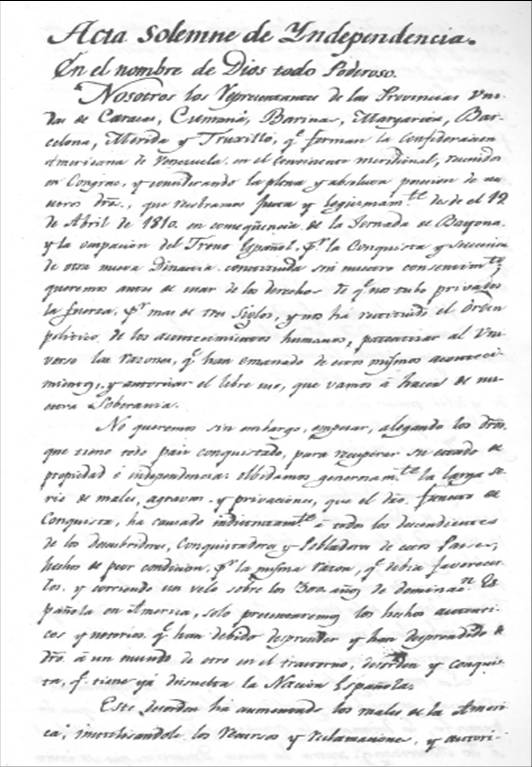 Acta solemne de Yndependencia.
En el nombre de Dios todo Poderoso.
Nosotros los Representantes de las Provincias Uni-
das de Caracas, Cumaná, Barinas, Margarita, Bar-
celona, Merida y Truxillo, q.e forman la Confederacion
Americana de Venezuela en el Continente meridional, reunidos
en Congreso, y considerando la plena y absoluta posesion de nu-
estros dros., que recobramos justa y legitimam.te desde el 19
de Abril de 1810. en conseqüencia de la Jornada de Bayona
y la ocupacion del Trono Español, p.r la Conquista y sucesion
de otra nueva Dinastia constituida sin nuestro consentim.to
queremos antes de usar de los derechos de q.e nos tubo privados
la fuerza, p.r mas de tres Siglos, y nos ha restituido el Orden
politico de los acontecimientos humanos, patentizar al Uni-
verso las razones, q.e han emanado de estos mismos aconteci-
mientos, y autorizar el libre uso, que vamos á hacer de nu-
estra Soberania.
No queremos sin embargo, empezar, alegando los dros.
que tiene todo pais conquistado, para recuperar su estado de
propiedad é independencia: olvidamos generosam.te la larga se-
rie de males, agravios y privaciones, que el dro. funesto de
Conquista, ha causado indistintam.te á todos los descendientes
de los descubridores, Conquistadores y Pobladores de estos Paises,
hechos de peor condicion, p.r la misma razon, q.e debia favorecer-
los, y corriendo un velo sobre los 300 años de dominac.n Es-
pañola en America, solo presentaremos los hechos autenti-
cos y notorios q.e han debido desprender y han desprendido de
dro. á un mundo de otro en el trastorno, desorden y conquis-
ta, q.e tiene yá disuelta la Nacion Española.
Este desorden ha aumentado los males de la Ameri-
ca, inutilizandole los recursos y reclamaciones, y autori-